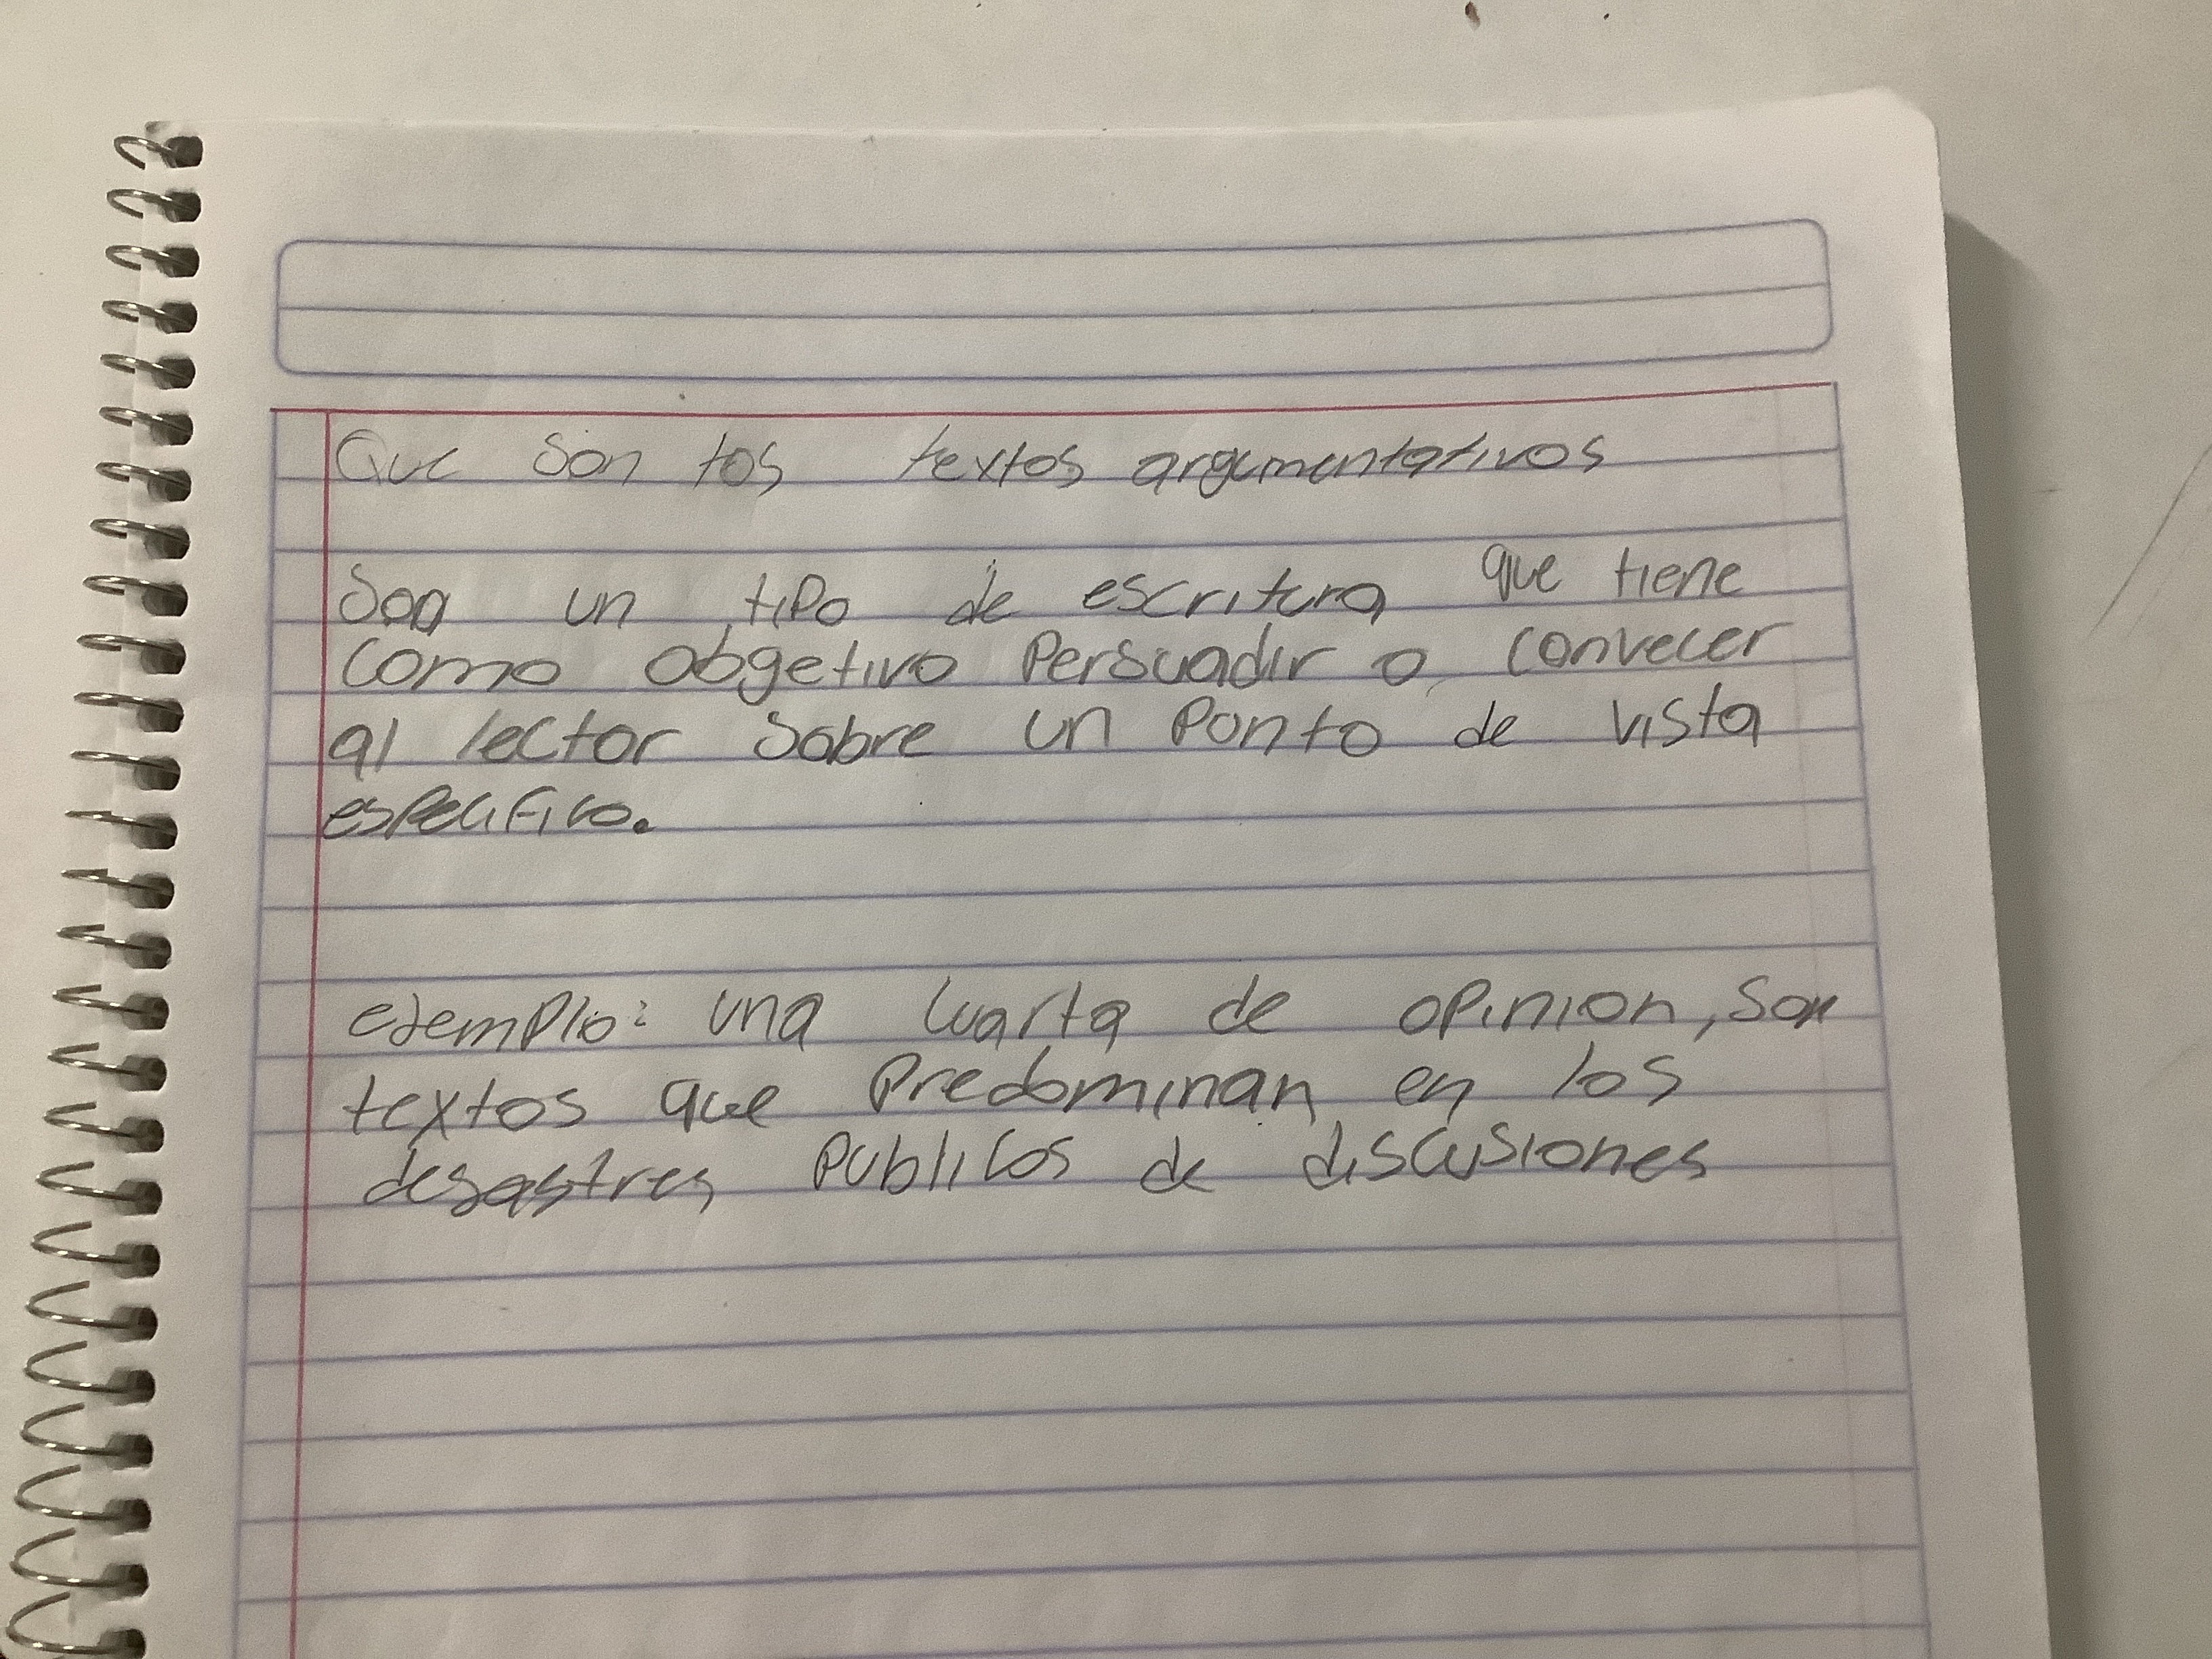 Que son tos textos argumentativos
Son un tipo de escritura que tiene
como obgetivo Persuadir o convecer
al lector sobre un Ponto de vista
especifico.
ejemplo: una cuarta de opinion, son
textos que Predominan en los
desastres Publicos de discusiones